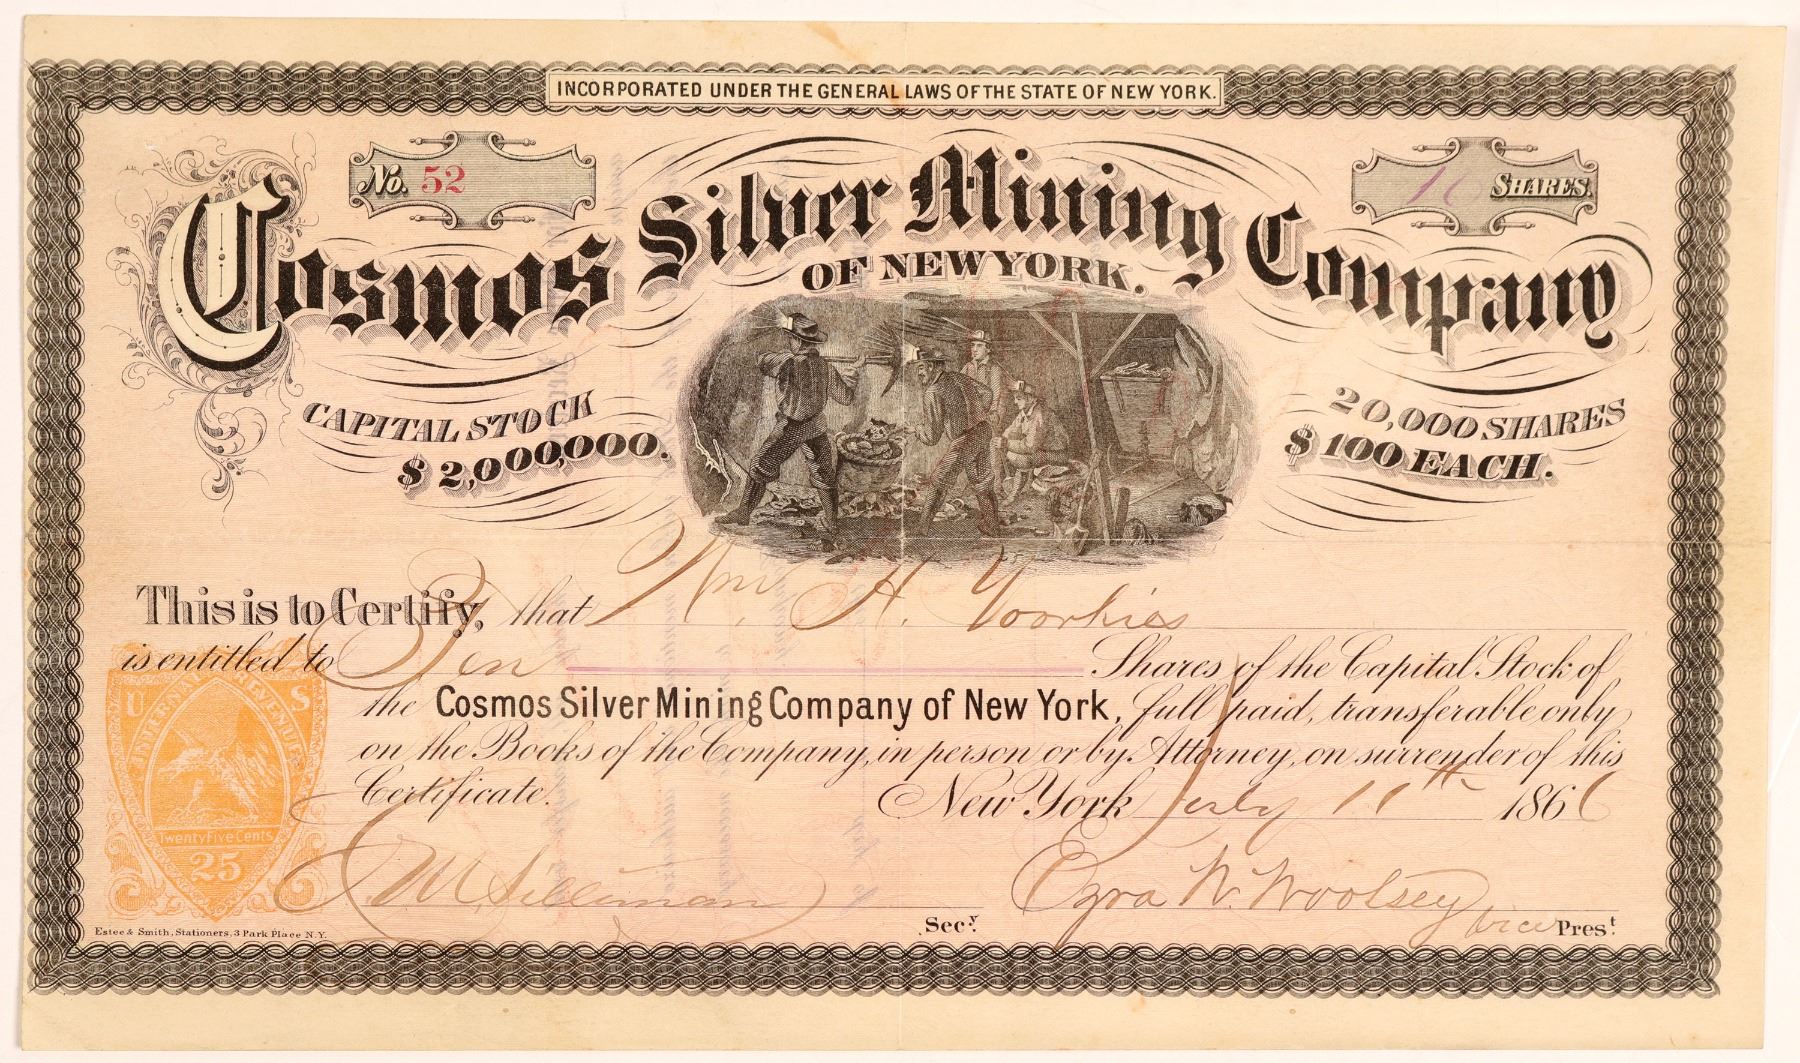 INCORPORATED UNDER THE GENERAL LAWS OF THE STATE OF NEW YORK.
No. 52
10 SHARES.
Cosmos Silver Mining Company
OF NEW YORK.
CAPITAL STOCK
$2,000,000.
20,000 SHARES
$100 EACH.
This is to Certify, that Wm. H. Voorhies
is entitled to Ten Shares of the Capital Stock of
the Cosmos Silver Mining Company of New York, full paid, transferable only
on the Books of the Company, in person or by Attorney, on surrender of this
Certificate. New York July 11th 1866
U S
INTERNAL REVENUE
Twenty Five Cents
25
Silliman Secy.
Ezra W. Woolsey Vice Prest.
Estee & Smith, Stationers, 3 Park Place N.Y.